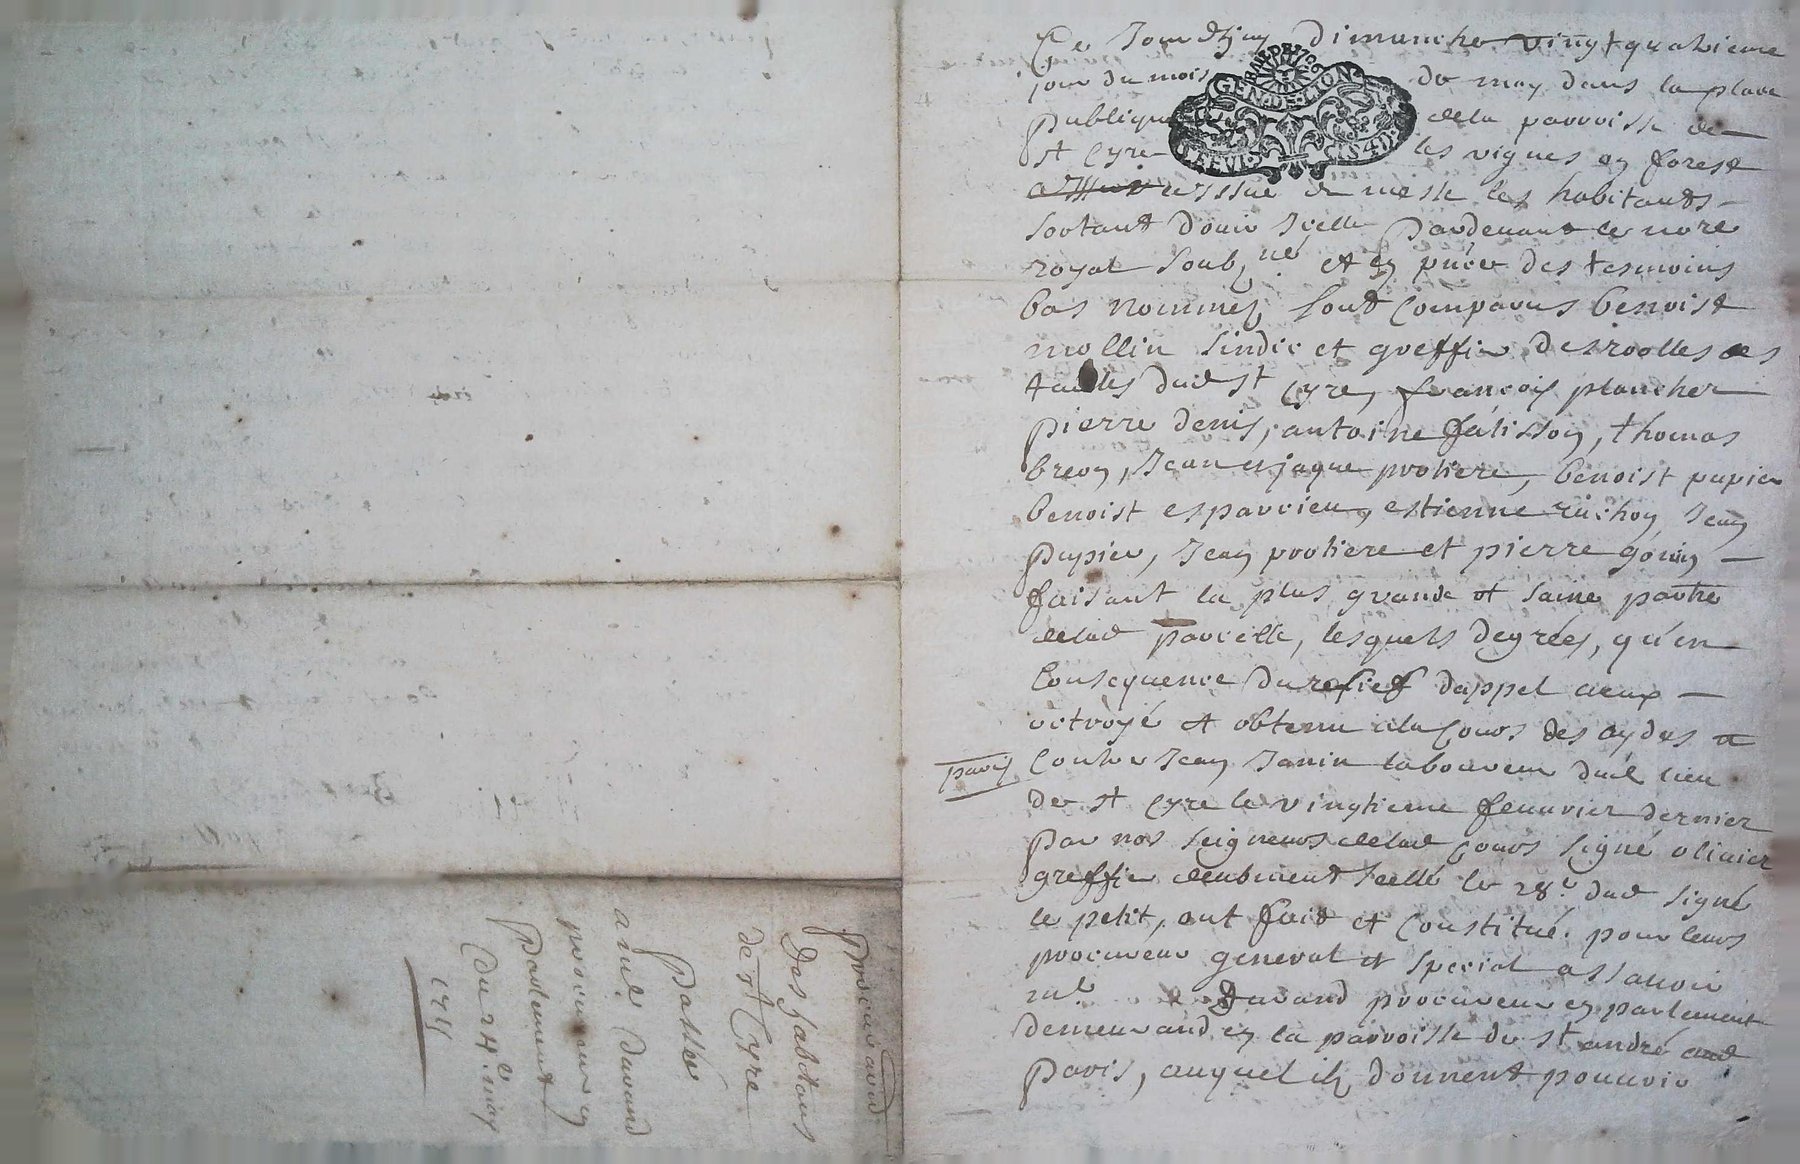 Ce Jourdhuy Dimanche vingt quatrieme
jour du mois de may dans la place
publique de la parroisse de
st Cyre les vignes en forest
issue de messe les habitants
sortant d'ouir Icelle Pardevant le nore
royal soub.né et en pnce des tesmoins
bas nommez sont comparus benoist
mollin sindic et greffier des roolles des
tailles dud st Cyre, francois plancher
pierre denis, antoine falisson, thomas
breon, Jean et jaque protiere, benoist pupier
benoist esparcieu, estienne ruchon Jean
pupier, Jean protiere et pierre gonin
faisant la plus grande et saine partie
de lad parcelle, lesquels degrées, qu'en
Consequence du relief dappel a eux
octroyé et obtenu a la Cours des aydes a
paris Contre Jean Janin laboureur dud lieu
de st Cyre le vingtieme feuvrier dernier
par nos seigneurs de lad Cours signé olivier
greffier deubment scellé le 28.e dud signé
le petit, ont faid et Constitué pour leurs
procureur general et special assavoir
me Durand procureur en parlement
demeurand en la parroisse de st andré
Paris, auquel ils donnent pouvoir
GEN. DE LION
Procuraon
Des habitans
de st Cyre
Passée
a me Durand
procureur en
Parlement
Du 24e may